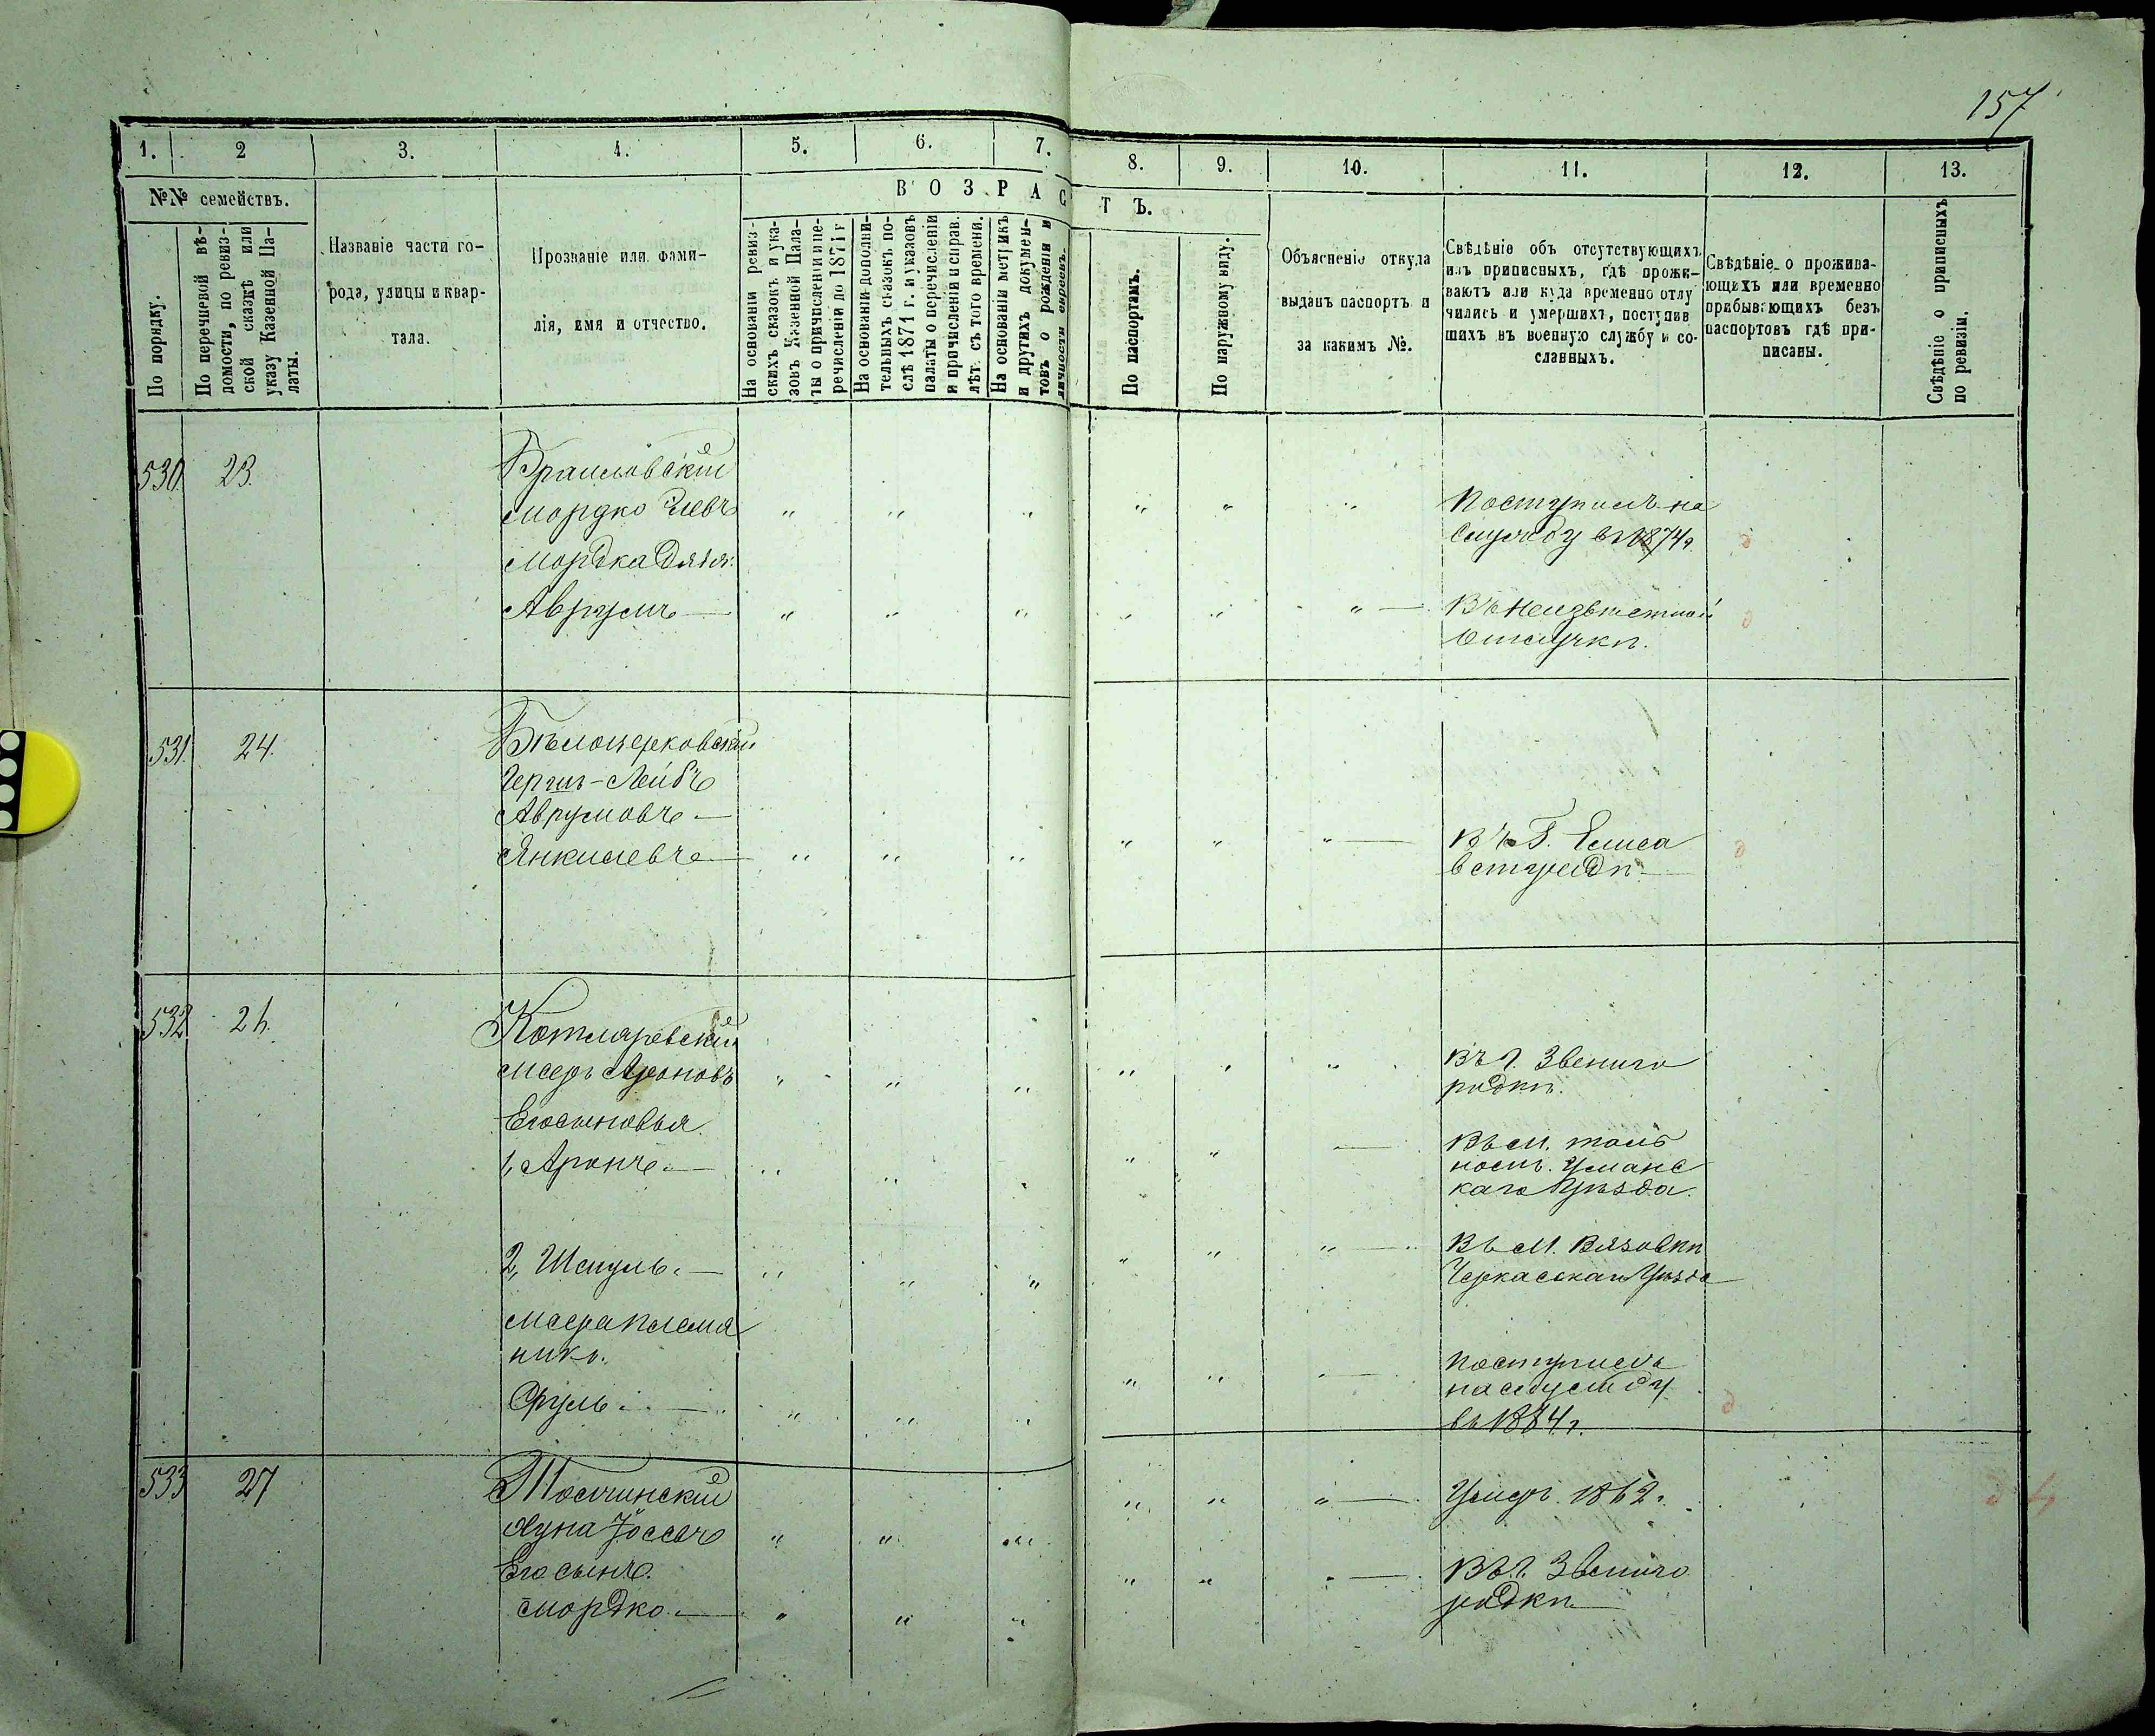 157
1.
2
3.
4.
5.
6.
7.
8.
9.
10.
11.
12.
13.
№№ семействъ.
По порядку.
По перечневой вѣ-
домости, по ревиз-
ской сказкѣ или
указу Казенной Па-
латы.
Названіе части го-
рода, улицы и квар-
тала.
Прозваніе или фами-
лія, имя и отчество.
ВОЗРАСТЪ.
На основаніи ревиз-
скихъ сказокъ и ука-
зовъ Казенной Пала-
ты о причисленіи и пе-
речисленіи до 1871 г
На основаніи дополни-
тельныхъ сказокъ по-
слѣ 1871 г. и указовъ
палаты о перечисленіи
и причисленіи и справ.
лѣт. съ того времени.
На основаніи метрикъ
и другихъ докумен-
товъ о рожденіи и
личности евреевъ.
По паспортамъ.
По наружному виду.
Объясненіе откуда
выданъ паспортъ и
за какимъ №.
Свѣдѣніе объ отсутствующихъ
изъ приписныхъ, гдѣ прожи-
ваютъ или куда временно отлу
чились и умершихъ, поступив
шихъ въ военную службу и со-
сланныхъ.
Свѣдѣніе о прожива-
ющихъ или временно
прибывающихъ безъ
паспортовъ гдѣ при-
писаны.
Свѣдѣніе о приписныхъ
по ревизіи.
530
23.
Браиловскій
Мордко
Поступилъ на
службу въ 1874 г
Мордка дядя:
Аврумъ —
Въ неизвѣстной
отлучкѣ.
531.
24.
Бѣлоцерковскій
Гершъ-Лейбъ
Аврумовъ —
Янкилевъ —
Въ Г. Елиса
ветградѣ
532
Котляревскій
Мееръ Ароновъ
Въ г. Звениго
родкѣ.
Его сыновья
1, Аронъ. —
Въ М. Таль
номъ. Уманс
каго Уѣзда.
2, Шмуль. —
Въ М. Вязовкѣ
Черкасскаго Уѣзда
Меера племя
никъ.
Сруль. —
Поступилъ
на службу
въ 1884 г.
533
27
Толчинскій
Хуна Іоссевъ
Умеръ. 1862 г.
Его сынъ.
Мордко. —
Въ г. Звениго
родкѣ